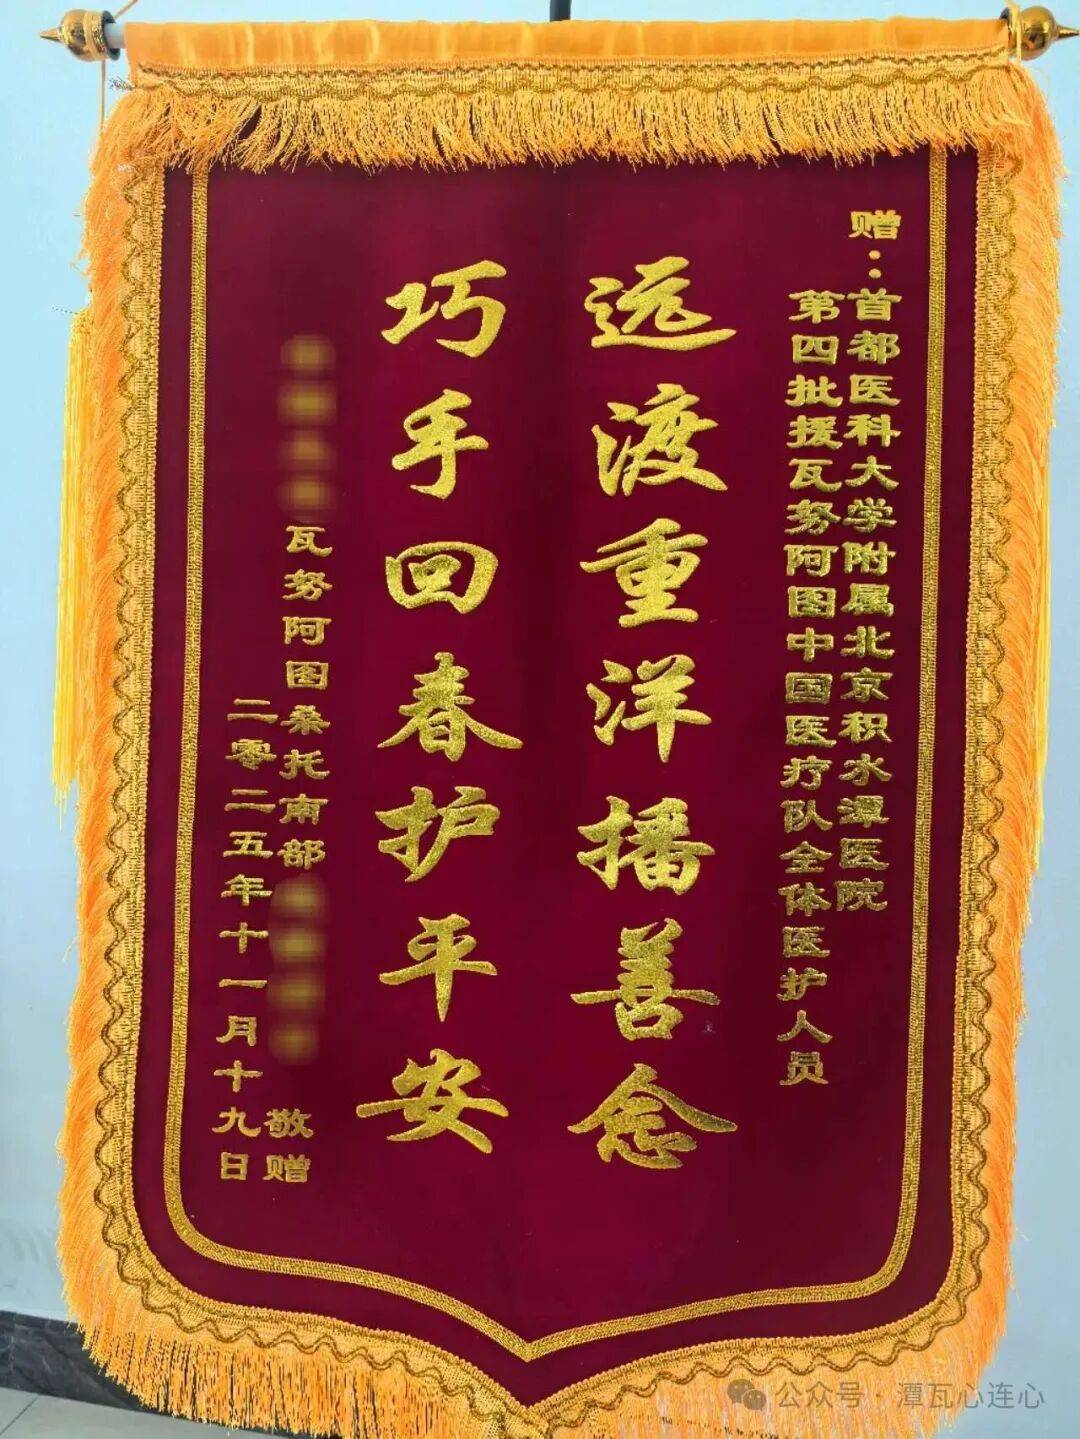 赠：首都医科大学附属北京积水潭医院
第四批援瓦努阿图中国医疗队全体医护人员
远渡重洋播善念
巧手回春护平安
瓦努阿图桑托南部 敬赠
二零二五年十一月十九日
公众号·潭瓦心连心